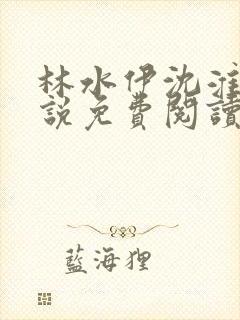 林水伊沈淮
說免費閱讀
藍海狸